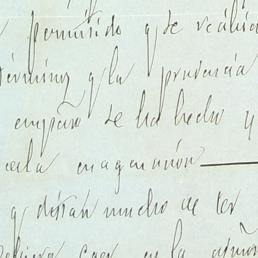 permitido y de realida
término, y la prudencia
empeño se ha hecho y
cada enagenación
y distan mucho de ser
caer en la